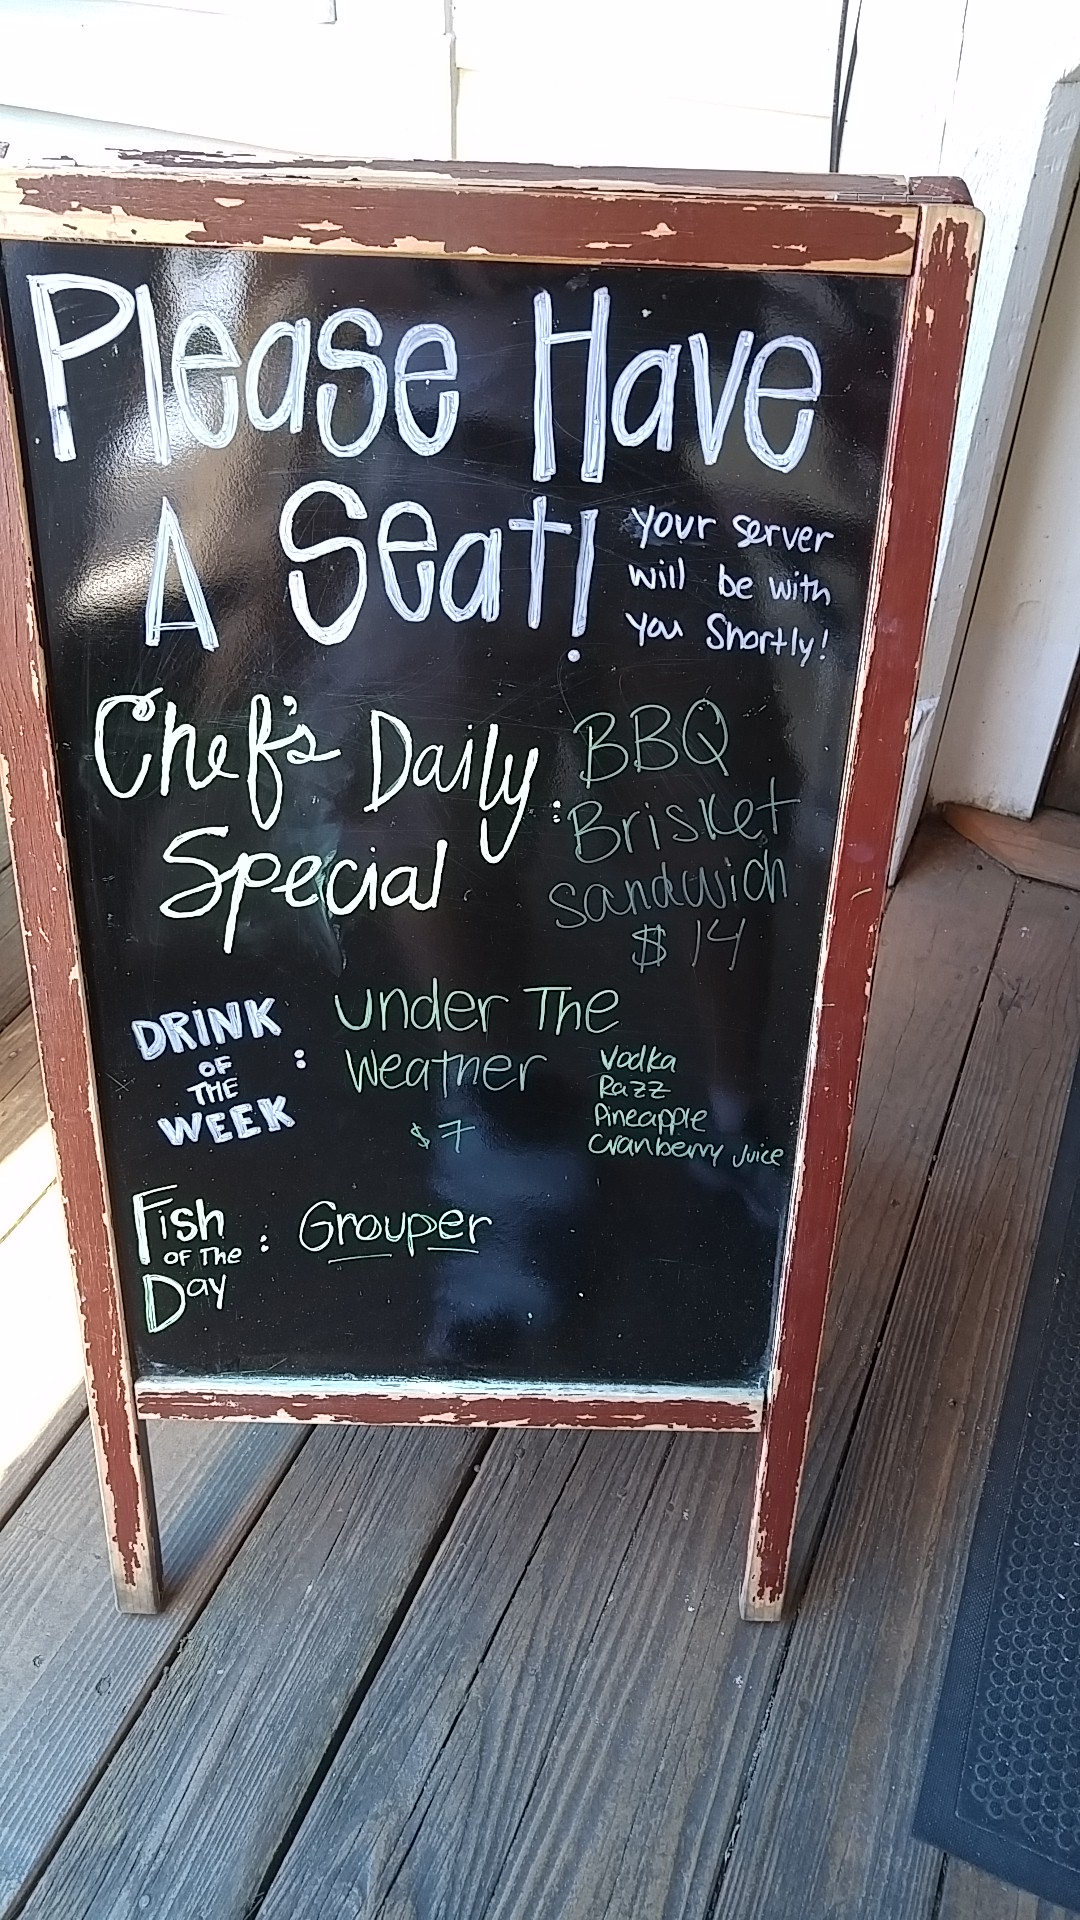 Please Have
A Seat!
Your server
will be with
you Shortly!
Chef's Daily
Special :
BBQ
Brisket
Sandwich
$14
DRINK
OF
THE
WEEK :
Under The
Weather
$7
Vodka
Razz
Pineapple
Cranberry Juice
Fish
OF The
Day :
Grouper